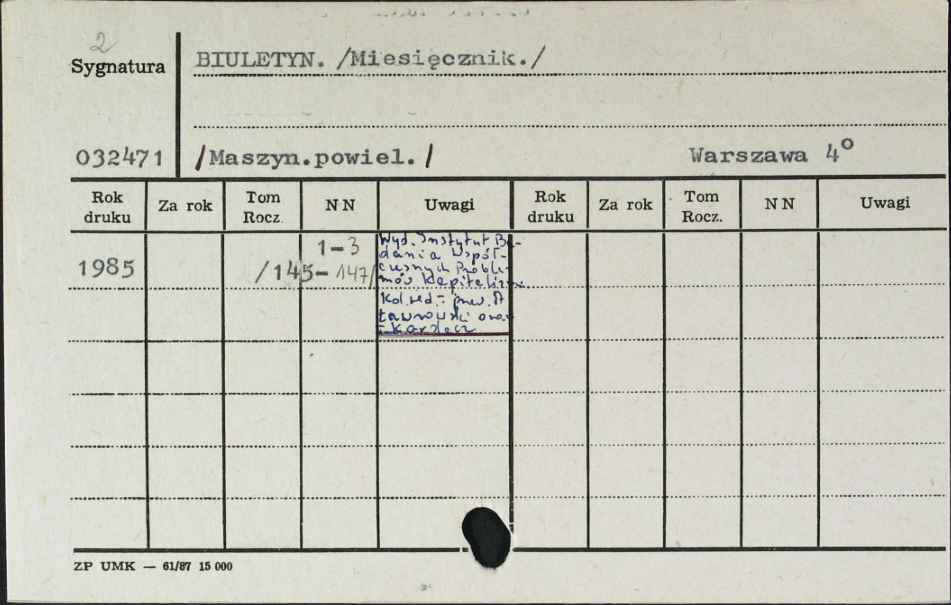 2
Sygnatura
BIULETYN. /Miesięcznik./
032471
/Maszyn.powiel./
Warszawa 4°
Rok druku
Za rok
Tom Rocz.
NN
Uwagi
Rok druku
Za rok
Tom Rocz.
NN
Uwagi
1985
1-3
/145-147/
Wyd. Instytut Ba-
dania Współ-
czesnych Proble-
mów Kapitalizmu
Kol. red.
ZP UMK — 61/87 15 000